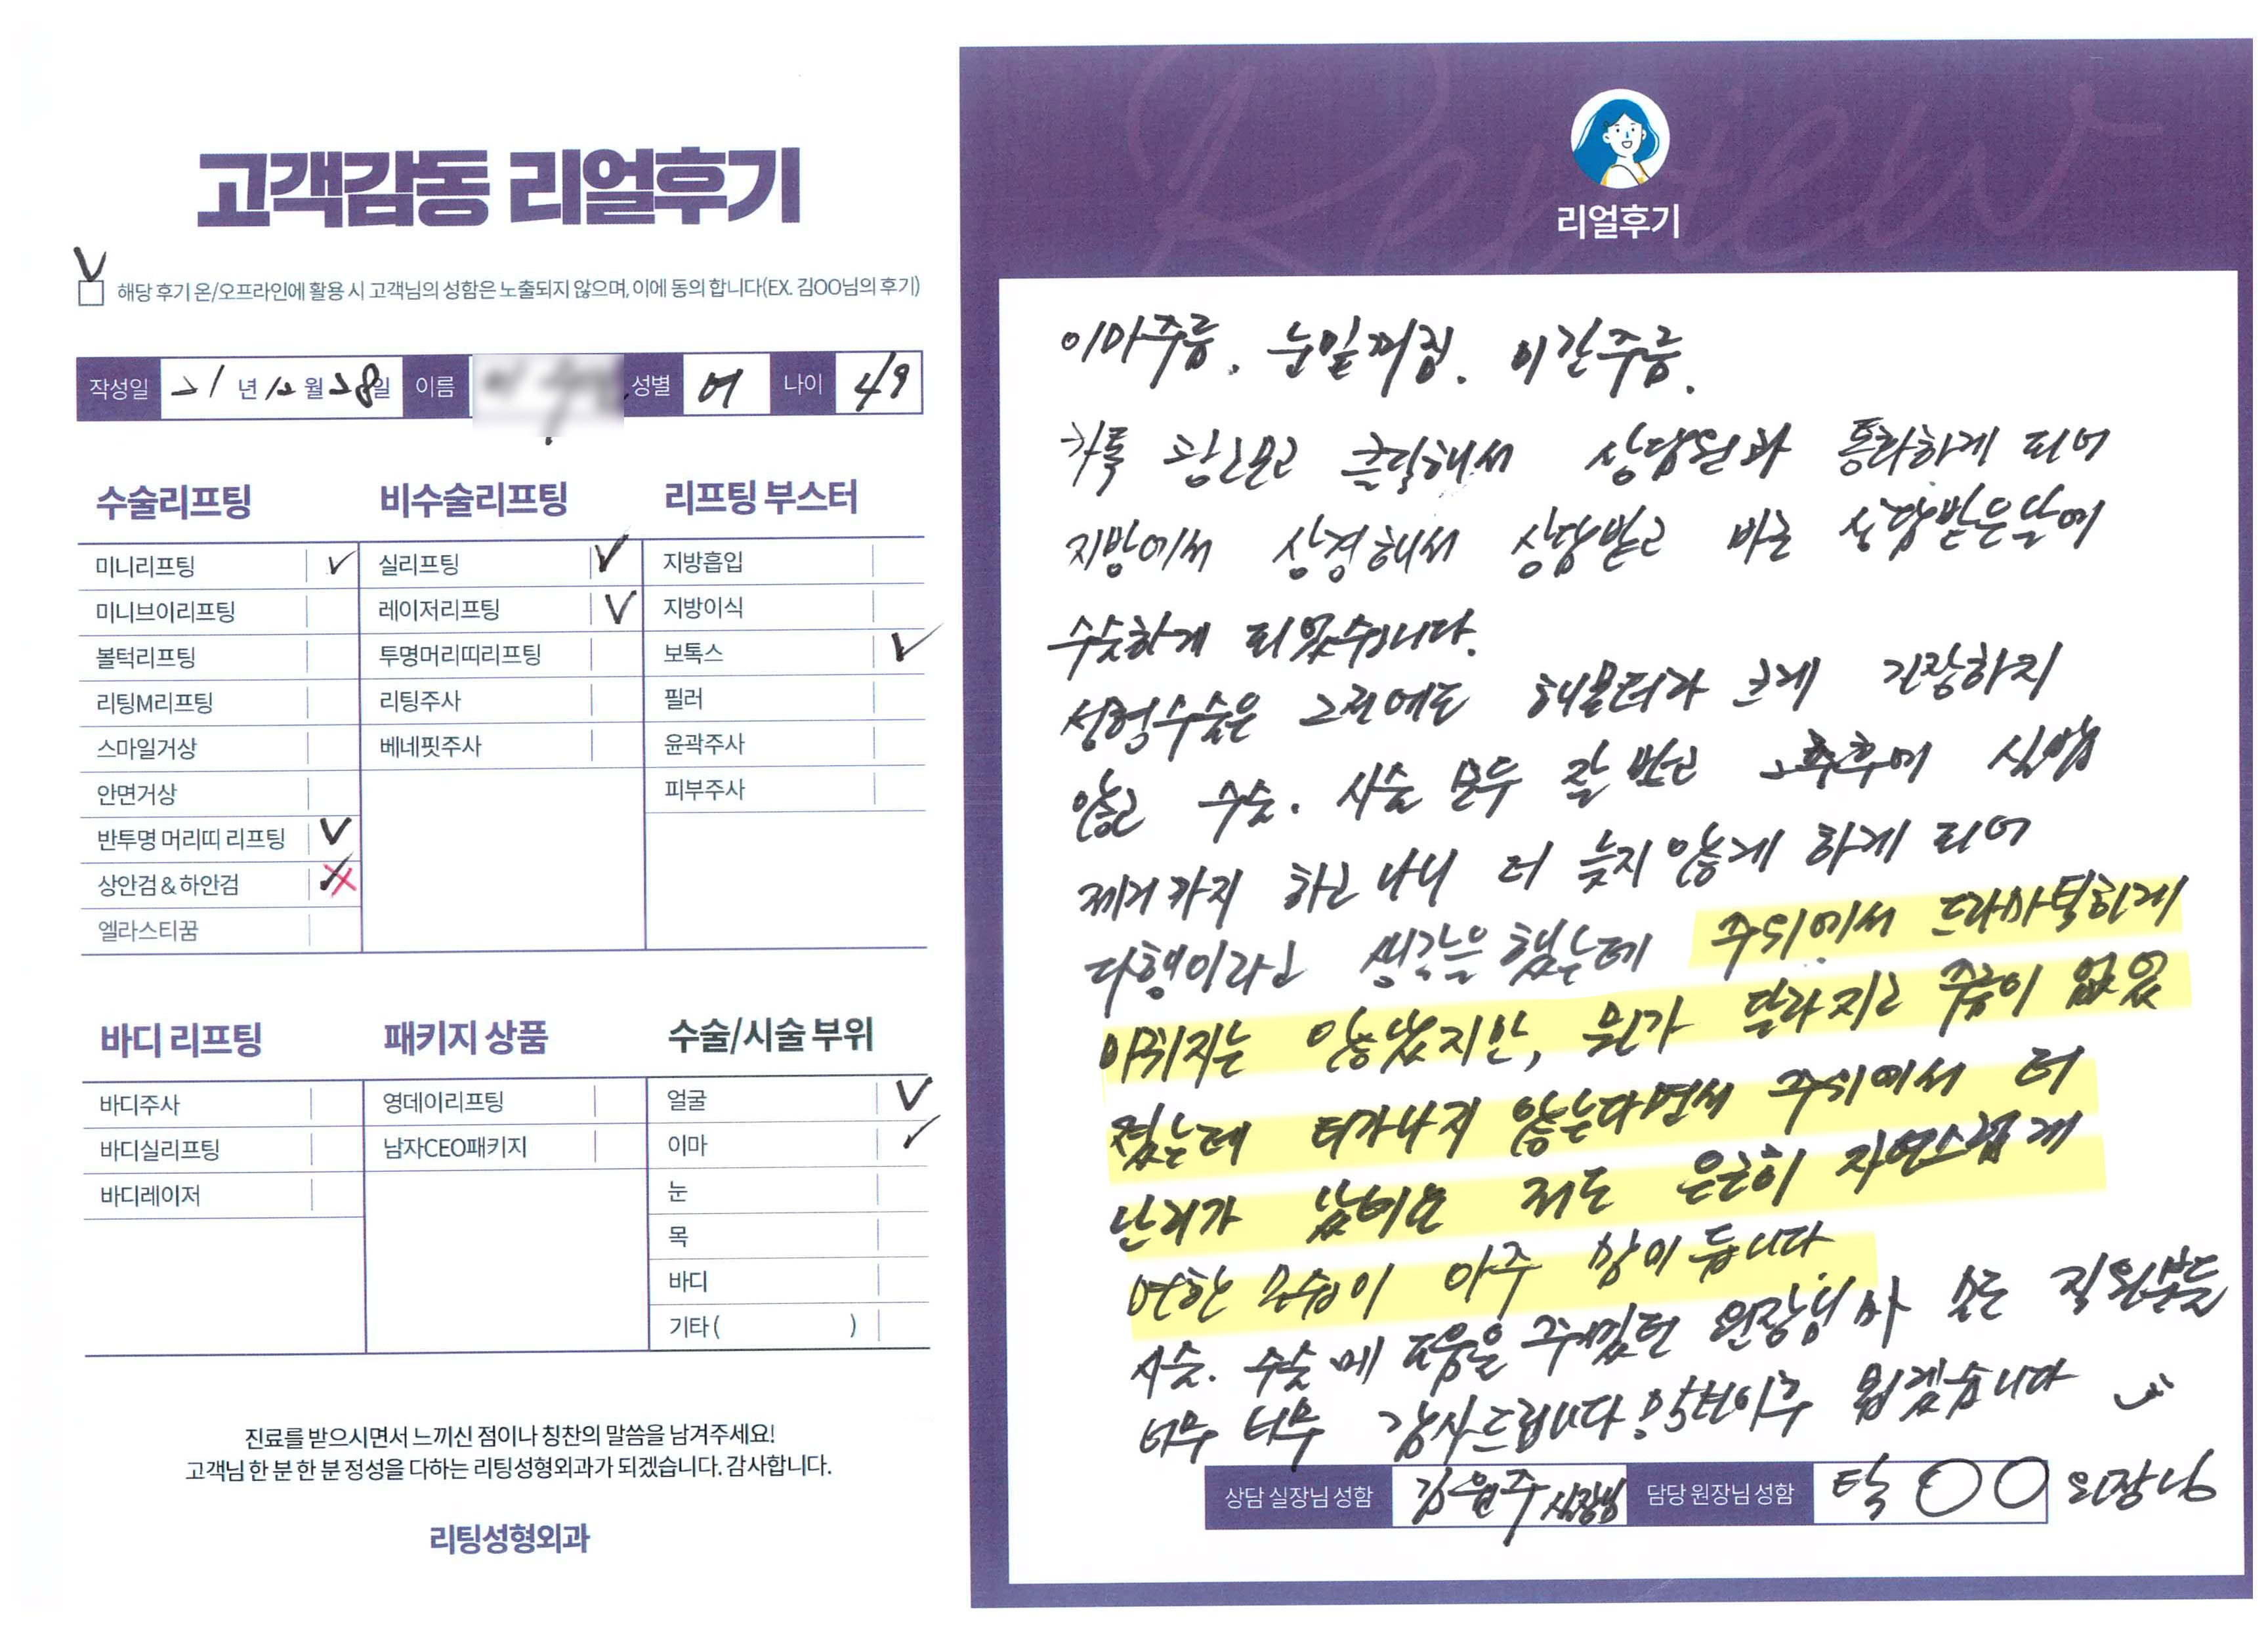 고객감동 리얼후기
V
해당 후기 온/오프라인에 활용 시 고객님의 성함은 노출되지 않으며, 이에 동의 합니다(EX. 김OO님의 후기)
작성일 21년 12월 28일 이름 성별 여 나이 49
수술리프팅
미니리프팅 V
미니브이리프팅
볼턱리프팅
리팅M리프팅
스마일거상
안면거상
반투명 머리띠 리프팅 V
상안검&하안검
엘라스티꿈
비수술리프팅
실리프팅 V
레이저리프팅 V
투명머리띠리프팅
리팅주사
베네핏주사
리프팅 부스터
지방흡입
지방이식
보톡스 V
필러
윤곽주사
피부주사
바디 리프팅
바디주사
바디실리프팅
바디레이저
패키지 상품
영데이리프팅
남자CEO패키지
수술/시술 부위
얼굴 V
이마 V
눈
목
바디
기타( )
진료를 받으시면서 느끼신 점이나 칭찬의 말씀을 남겨주세요!
고객님 한 분 한 분 정성을 다하는 리팅성형외과가 되겠습니다. 감사합니다.
리팅성형외과
Review
리얼후기
이마주름. 눈밑꺼짐. 미간주름.
카톡 클릭해서 상담원과 통화하게 되어
지방에서 상경해서 상담받고 바로 상담받은날에
수술하게 되었습니다.
성형수술은 그전에도 해봤던터라 크게 긴장하지
않고 수술. 시술 모두 잘 받고 그후에 실밥
제거까지 하고나니 더 늦지않게 하게 되어
다행이라고 생각을 했는데 주위에서 드라마틱하게
바뀌지는 않았지만, 뭔가 달라지고 주름이 없었
졌는데 티가나지 않는다면서 주위에서 더
난리가 났네요 저도 은근히 자연스럽게
변한 모습이 아주 맘에 듭니다
시술. 수술에 도움을 주셨던 원장님과 모든 직원분들
너무 너무 감사드립니다. 뵙겠습니다
상담 실장님 성함 김원주 실장님 담당 원장님 성함 탁 OO 원장님